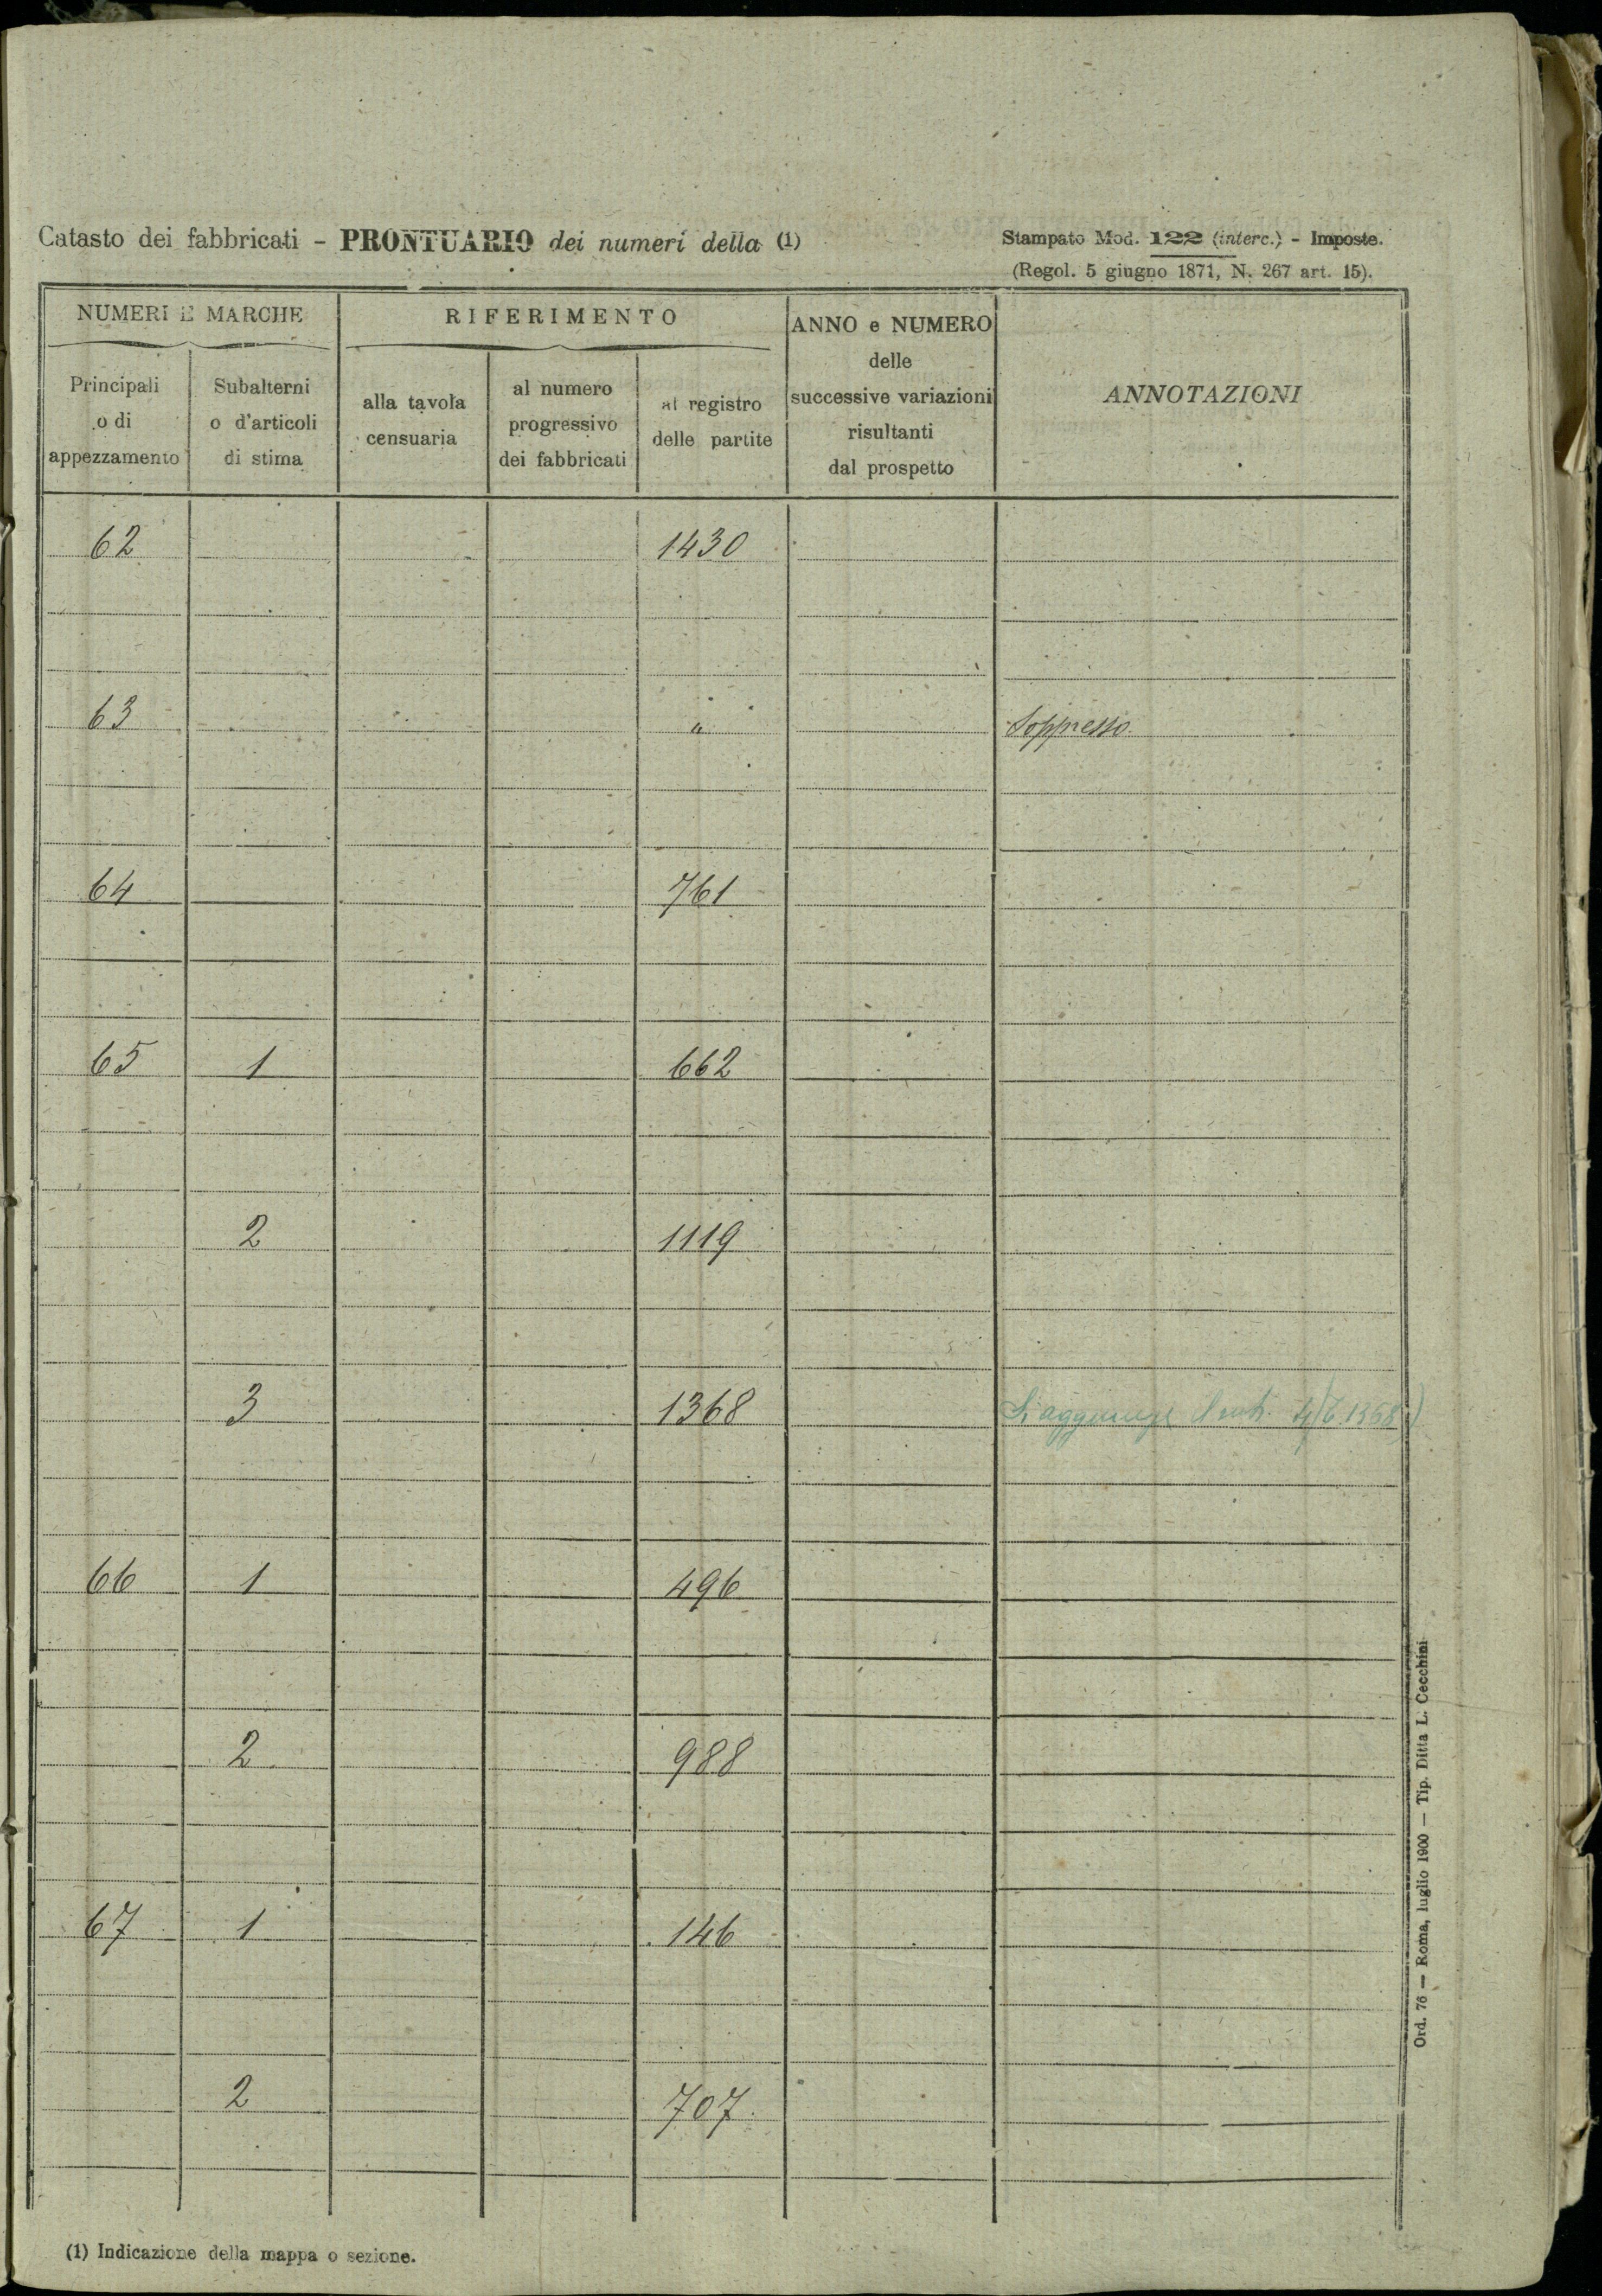 Catasto dei fabbricati - PRONTUARIO dei numeri della (1)
Stampato Mod. 122 (interc.) - Imposte.
(Regol. 5 giugno 1871, N. 267 art. 15).
NUMERI E MARCHE
RIFERIMENTO
ANNO e NUMERO
delle
successive variazioni
risultanti
dal prospetto
ANNOTAZIONI
Principali
o di
appezzamento
Subalterni
o d'articoli
di stima
alla tavola
censuaria
al numero
progressivo
dei fabbricati
al registro
delle partite
62 1430
63 " Soppresso
64 761
65 1 662
2 1119
3 1368 Si aggiunge 1368)
66 1 496
2 988
67 1 146
2 707
(1) Indicazione della mappa o sezione.
Ord. 76 — Roma, luglio 1900 — Tip. Ditta L. Cecchini